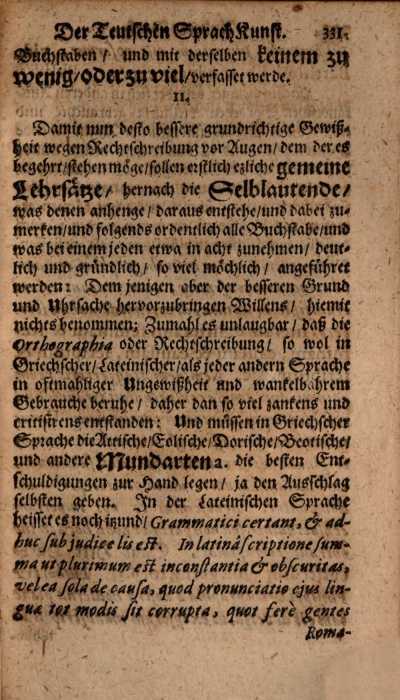 Der Teutschen Sprach Kunst. 331.
Buchstaben / und mit derselben keinem zu
wenig / oder zu viel / verfasset werde.
11.
Damit nun desto bessere grundrichtige Gewiß-
heit wegen Rechtschreibung vor Augen / dem der es
begehrt / stehen möge / sollen erstlich ezliche gemeine
Lehrsätze / hernach die Selblautende /
was denen anhenge / daraus entstehe / und dabei zu-
merken / und folgends ordentlich alle Buchstabe / und
was bei einem jeden etwa in acht zunehmen / deut-
lich und gründlich / so viel möchlich / angeführet
werden: Dem jenigen aber der besseren Grund
und Uhrsache hervorzubringen Willens / hiemit
nichts benommen; Zumahl es unlaugbar / daß die
Orthographia oder Rechtschreibung / so wol in
Griechscher / Lateinischer / als jeder andern Sprache
in oftmahliger Ungewißheit und wankelbahrem
Gebrauche beruhe / daher dan so viel zankens und
critisirens entstanden: Und müssen in Griechscher
Sprache die Attische / Eolische / Dorische / Beotische /
und andere Mundarten 2. die besten Ent-
schuldigungen zur Hand legen / ja den Ausschlag
selbsten geben. In der Lateinischen Sprache
heisset es noch izund / Grammatici certant, & ad-
huc sub judice lis est. In latinâ scriptione sum-
ma ut plurimum est inconstantia & obscuritas,
vel ea sola de causa, quod pronunciatio ejus lin-
guæ tot modis sit corrupta, quot ferè gentes
Roma-